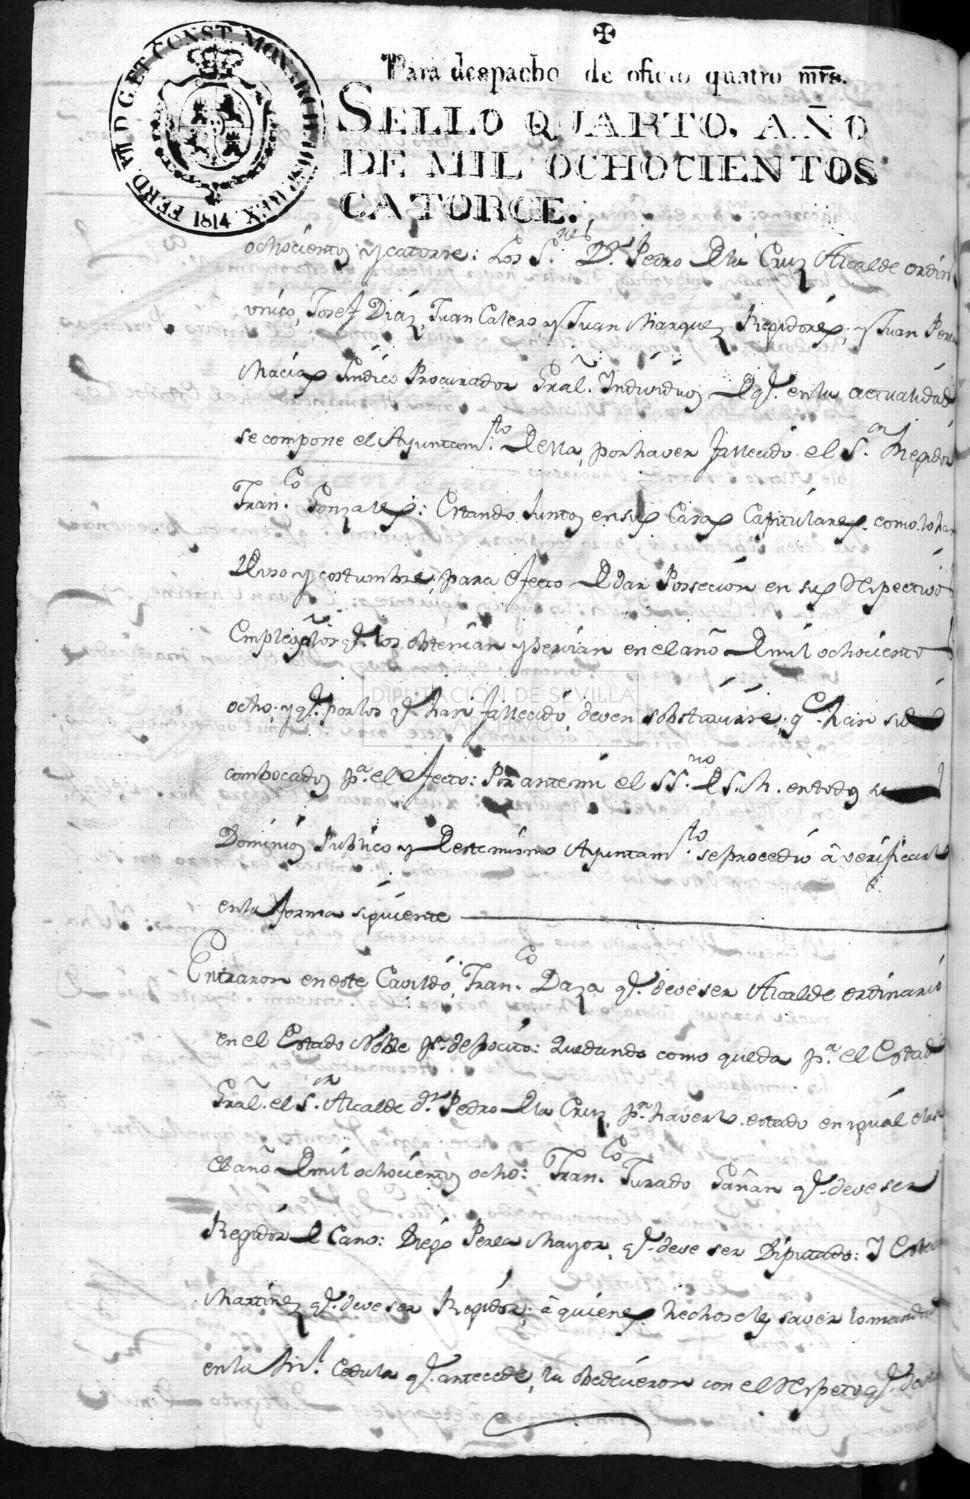 FERD. VII. D. G. ET CONST. MONARCH. HISP. REX. 1814
Para despacho de oficio quatro mrs.
SELLO QUARTO, AÑO
DE MIL OCHOCIENTOS
CATORCE.
ochocientos y catorse: Los S.res Dn. Pedro De la Cruz Alcalde ordin
unico, Josef Diaz, Juan Calero y Juan Marquez Regidores, y Juan Perea
Macias Sindico Procurador Gral. Individuos De qe. en la actualidad
se compone el Ayuntam.to De ella, por haver fallecido el S.or Regidor
Fran.co Gonzales: Estando Juntos en sus Casas Capitulares como lo han
De uso y costumbre, para efecto De dar Possecion en sus Respectivos
Empleos a los qe. los obtenian y servian en el año De mil ochocientos
ocho, y qe. por los qe. han fallecido deven sobstituirse, qe. han sido
combocados pa. el efecto: Por ante mi el SS.no De S.M. en todos su
Dominios Publico y De este mismo Ayuntam.to se procedió á verificarlo
en la forma siguiente
Entraron en este Cavildo, Fran.co Daza qe. deve ser Alcalde ordinario
en el Estado Noble pr. deposito: Quedando como queda pa. el Estado
Gral. el S.or Alcalde dn. Pedro De la Cruz, pr. haverlo estado en igual clase
el año De mil ochocientos ocho: Fran.co Jurado Gañan qe. deve ser
Regidor De Cano: Diego Perea Mayor, qe. deve ser Diputado: Y
Martinez qe. deve ser Regidor, á quienes hechoseles saver lo mandado
en la Rl. Cedula qe. antecede, la obedecieron con el Respeto qe. deven
DIPUTACIÓN DE SEVILLA
ARCHIVO